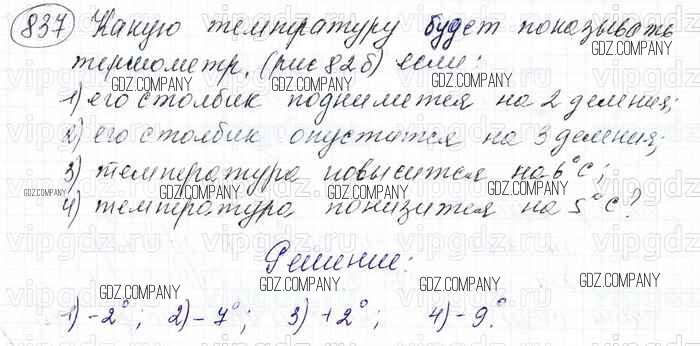 837 Какую температуру будет показывать
термометр, (рис 82б) если:
1) его столбик поднимется на 2 деления;
2) его столбик опустится на 3 деления;
3) температура повысится на 6°С;
4) температура понизится на 5°С?
Решение:
1) -2°; 2) -7°; 3) +2°; 4) -9°.
GDZ.COMPANY
GDZ.COMPANY
GDZ.COMPANY
GDZ.COMPANY
GDZ.COMPANY
GDZ.COMPANY
GDZ.COMPANY
GDZ.COMPANY
GDZ.COMPANY
GDZ.COMPANY
GDZ.COMPANY
GDZ.COMPANY
GDZ.COMPANY
GDZ.COMPANY